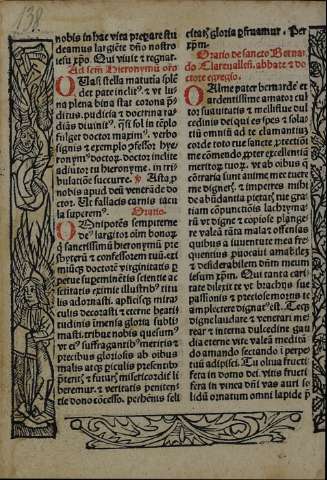 138.
nobis in hac vita prepare stu
deamus largiēte dño nostro
iesu xpo. Qui viuit ⁊ regnat.
Ad scm̄ Hieronymū orō
Vlas stella matutia splē
det pate inclit⁹. ⁊ vt lu
na plena bina stat corona p̄
ditus. pudicia ⁊ doctrina ra
diās diuinit⁹. q̄si sol in tēplo
fulget doctor maxim⁹. verbo
signis ⁊ exemplo ꝓfessor hye
ronym⁹ doctor. doctor inclite
adiutor tu hieronyme. in tri
bulatiōe succurre. Ora p
nobis apud deū venerāde do
ctor. Ut fallacis carnis iacu
la superem⁹. Oratio.
Omnipotēs sempiterne
de⁹ largitor oīm bonorū
q̄ sanctissimū hieronymū pre
sbyterū ⁊ confessorem tuū exi
miū eccl̄ie doctorē virginitatis p
petue supeminētis scientie ac
scitatis eximie illustrib⁹ titu
lis adornasti. aplicisq mira
culis decorasti ⁊ eterne beati
tudinis īmensa gloria subli
masti. tribue nobis quesum⁹
vt ei⁹ suffragantib⁹ meritis ⁊
precibus gloriosis ab oībus
malis atq piculis presentib⁹
p̄teritis ⁊ futuris misericordit̄ li
beremur. ⁊ veritatis peniten
tie dono cōcesso. pechēnis feli
citatis gloria pfruamur. Per
xpm.
Oratio de sancto Bernar
do Clareuallen̄. abbate ⁊ do
ctore egregio.
O Alme pater bernarde ex
ardentissimo amator cul
tor suauitatis ⁊ mellifluē dul
cedinis dei qui es spes ⁊ sola
tiū omniū ad te clamantiū ex
corde toto que
tue cōmendo poter excellentie
meritor tuor. vt ab oībus q̄
cōtraria sunt anime mee tuere
me digner. ⁊ imperres mihi
de habūdantia pietatis tue gra
tiam cōpunctiōis lachryma
rū vt digne ⁊ copiose plange
re valeā tāta mala ⁊ offensas
quibus a iuuentute mea fre
quentius puocaui amabilez
⁊ desiderabilem dn̄m meum
iesum xpm. Qui tanta cari
tate dilexit te vt brachijs sue
passionis ⁊ preciose mortis te
amplectere dignat⁹ est.
digne laudare ⁊ venerari me
rear ⁊ interna dulcedine gau
dia eterne vite valeā medita
do amando secundo ꝑpetuo
tuū adipisci. Tu oliua fructi
fera in domo dei. vitis fructi
fera in vinea dn̄i vas auri so
lidū ornatum omni lapide p̄